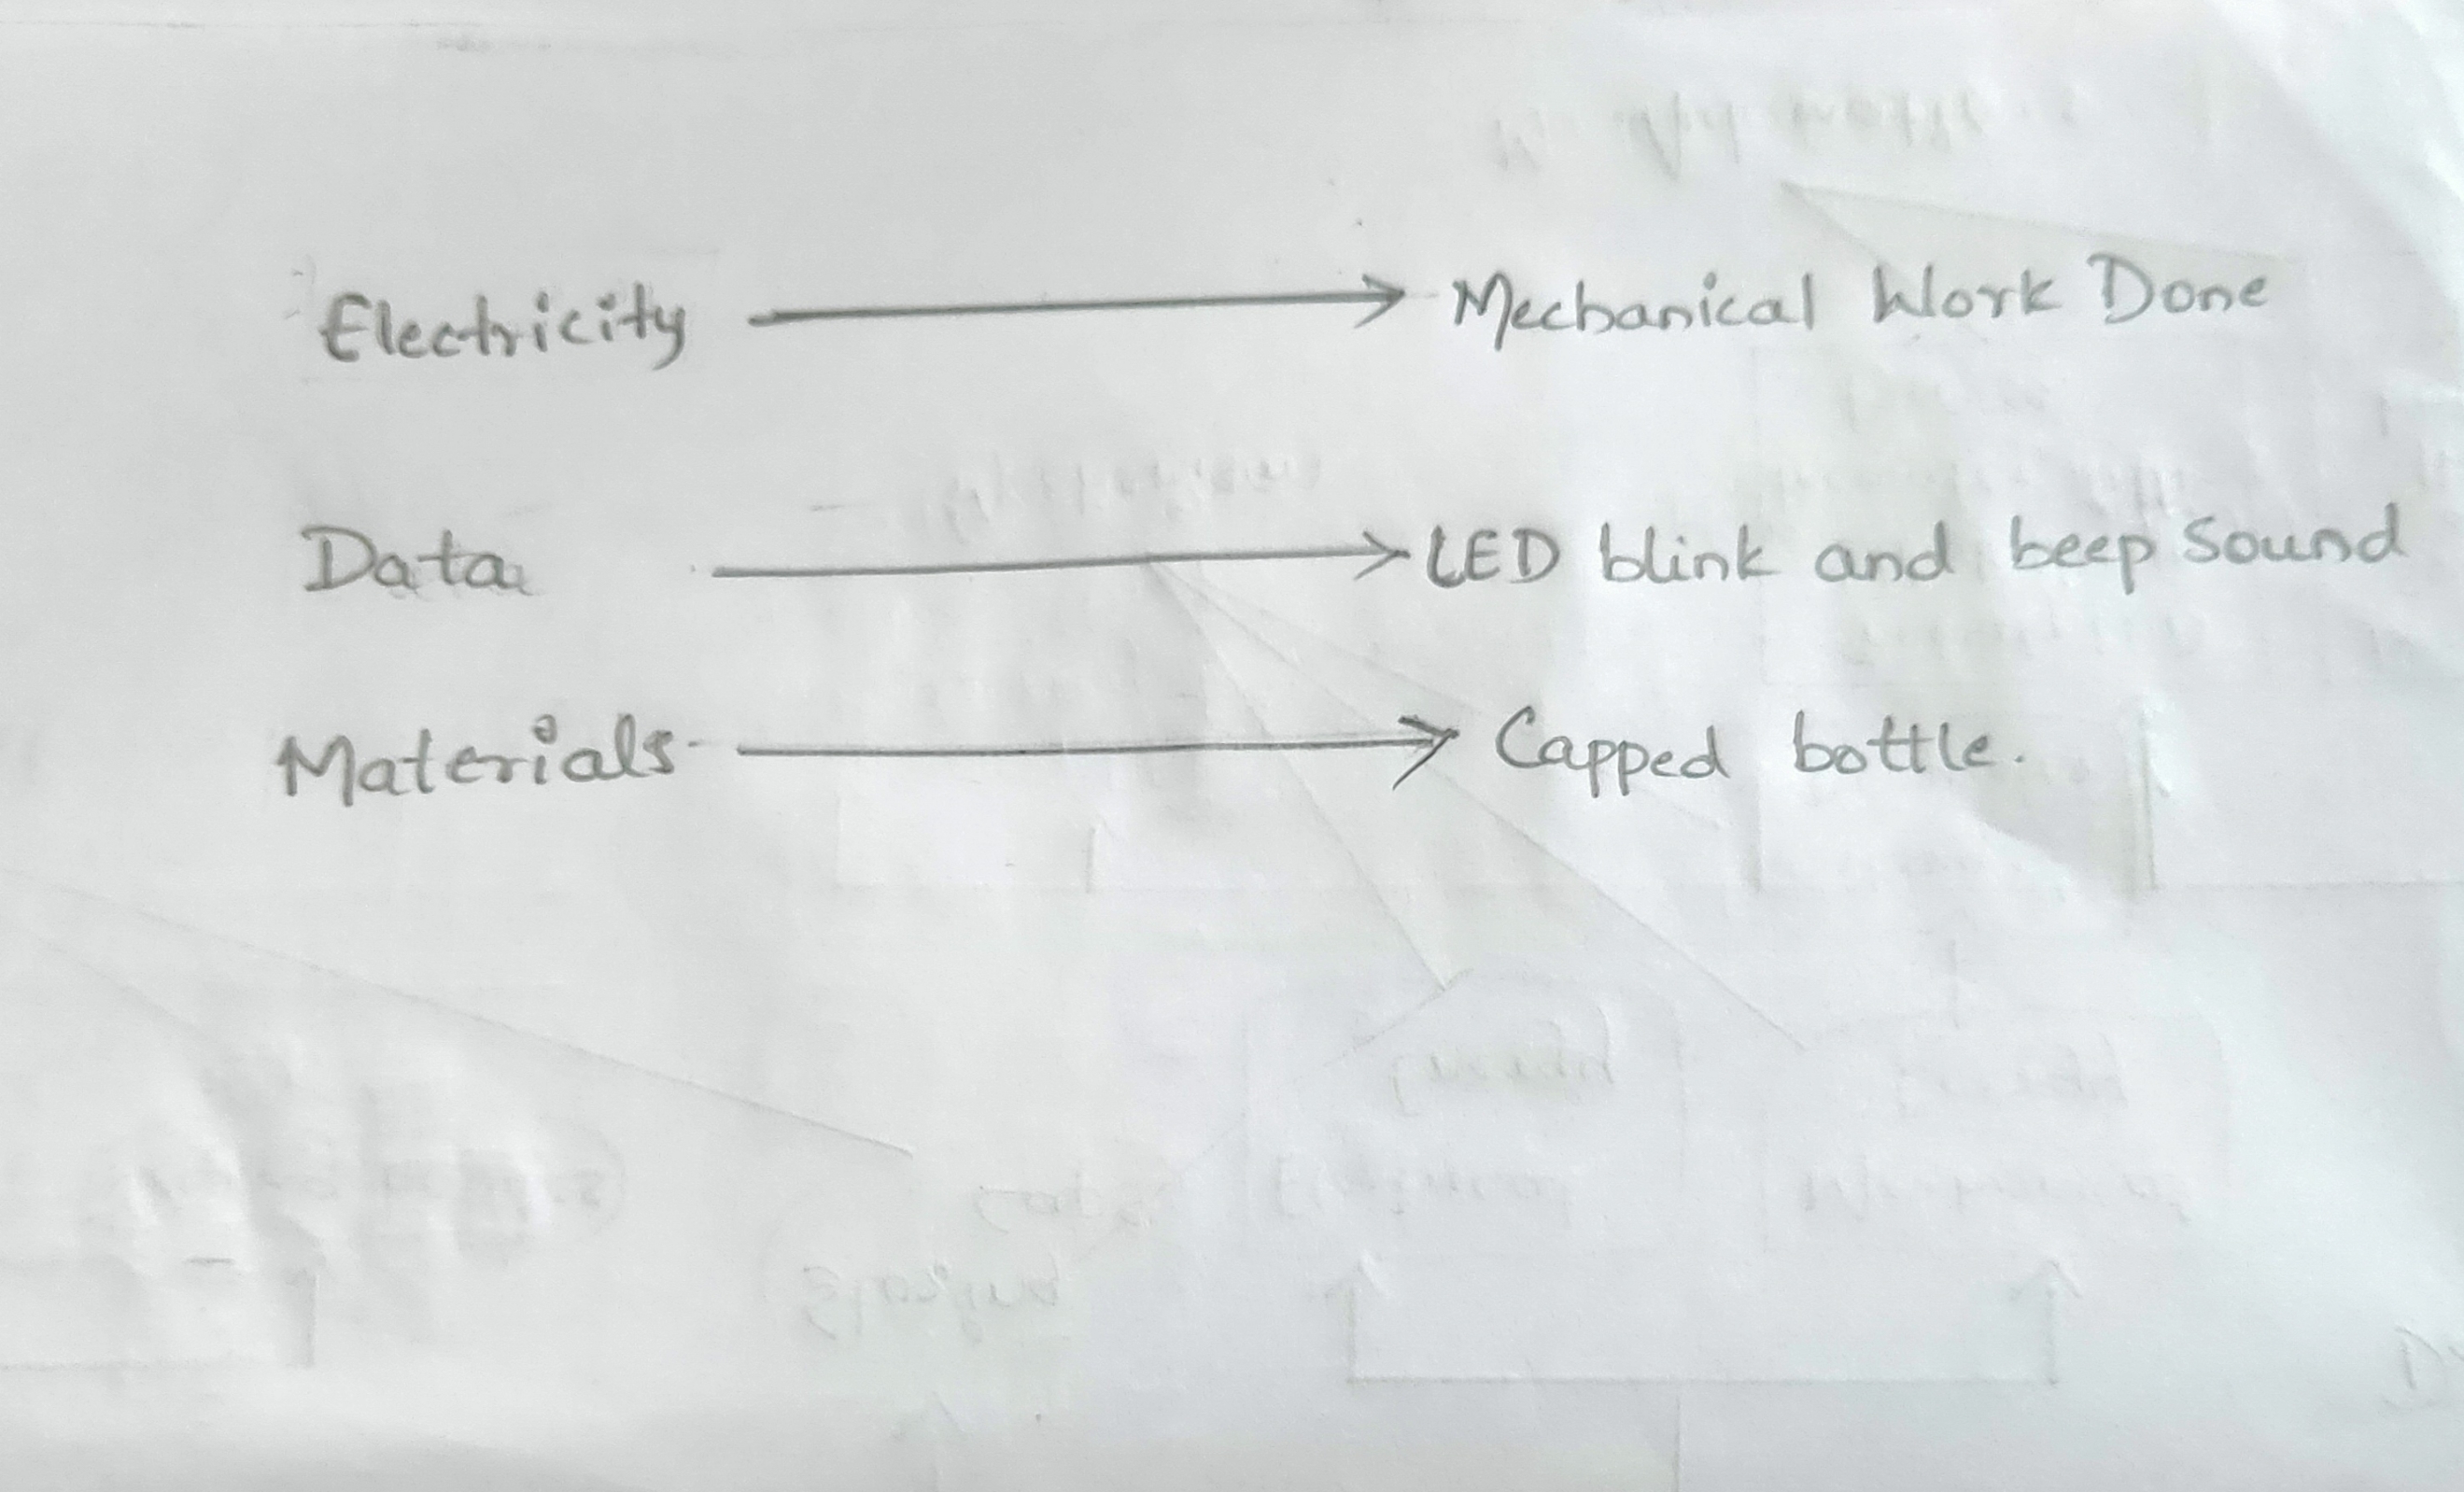 Electricity → Mechanical Work Done
Data → LED blink and beep sound
Materials → Capped bottle.